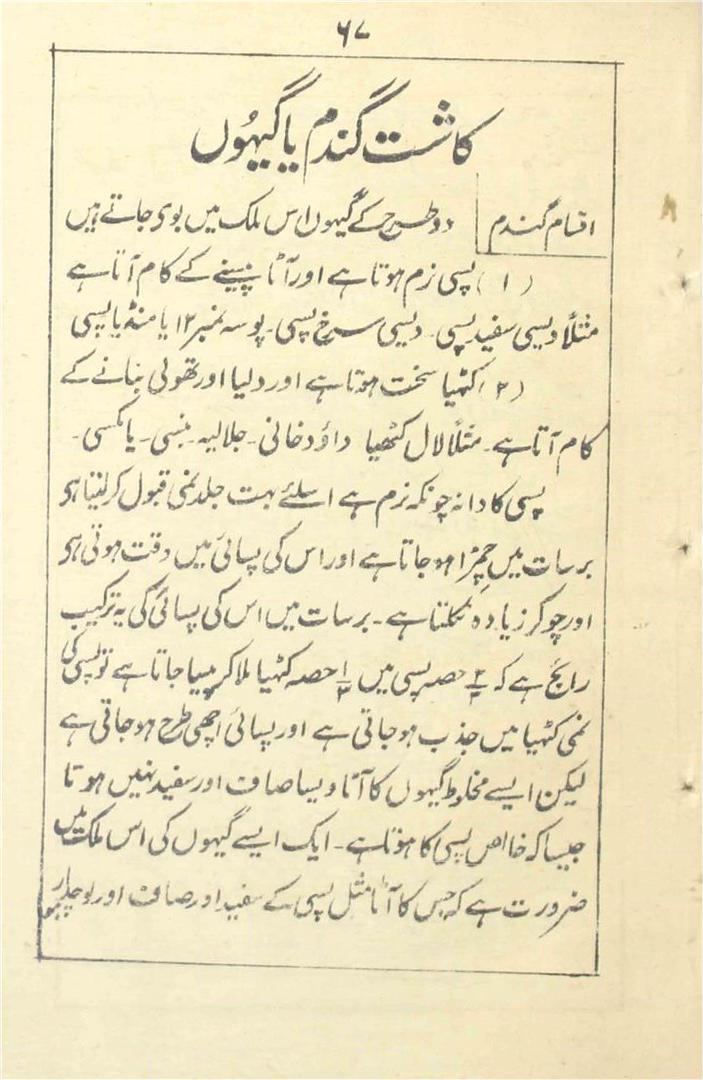 ۶۷
کاشت گندم یا گیہُوں
اقسام گندم
دو طرح کے گیہوں اس ملک میں بوی جاتے ہیں
(۱) پسی نرم ہوتا ہے اور آٹا پیسنے کے کام آتا ہے
مثلاً دیسی سفید پسی۔ دیسی سرخ پسی۔ پوسہ نمبر ۱۲ یا منڈیا پسی
(۲) کٹھیا سخت ہوتا ہے اور دلیا اور تھولی بنانے کے
کام آتا ہے۔ مثلاً لال کٹھیا داؤد خانی۔ جلالیہ۔ بنسی۔ یا کسی۔
پسی کا دانہ چونکہ نرم ہے اسلئے بہت جلد نمی قبول کر لیتا ہو
برسات میں چمڑا ہو جاتا ہے اور اس کی پسائی میں دقت ہوتی ہو
اور چوکر زیادہ نکلتا ہے۔ برسات میں اس کی پسائی کی یہ ترکیب
رائج ہے کہ ۲/۳ حصہ پسی میں ۱/۳ حصہ کٹھیا ملا کر پیسا جاتا ہے تو پسی کی
نمی کٹھیا میں جذب ہو جاتی ہے اور پسائی اچھی طرح ہو جاتی ہے
لیکن ایسے مخلوط گیہوں کا آٹا ویسا صاف اور سفید نہیں ہوتا
جیسا کہ خالص پسی کا ہوتا ہے۔ ایک ایسے گیہوں کی اس ملک میں
ضرورت ہے کہ جس کا آٹا مثل پسی کے سفید اور صاف اور لوچدار